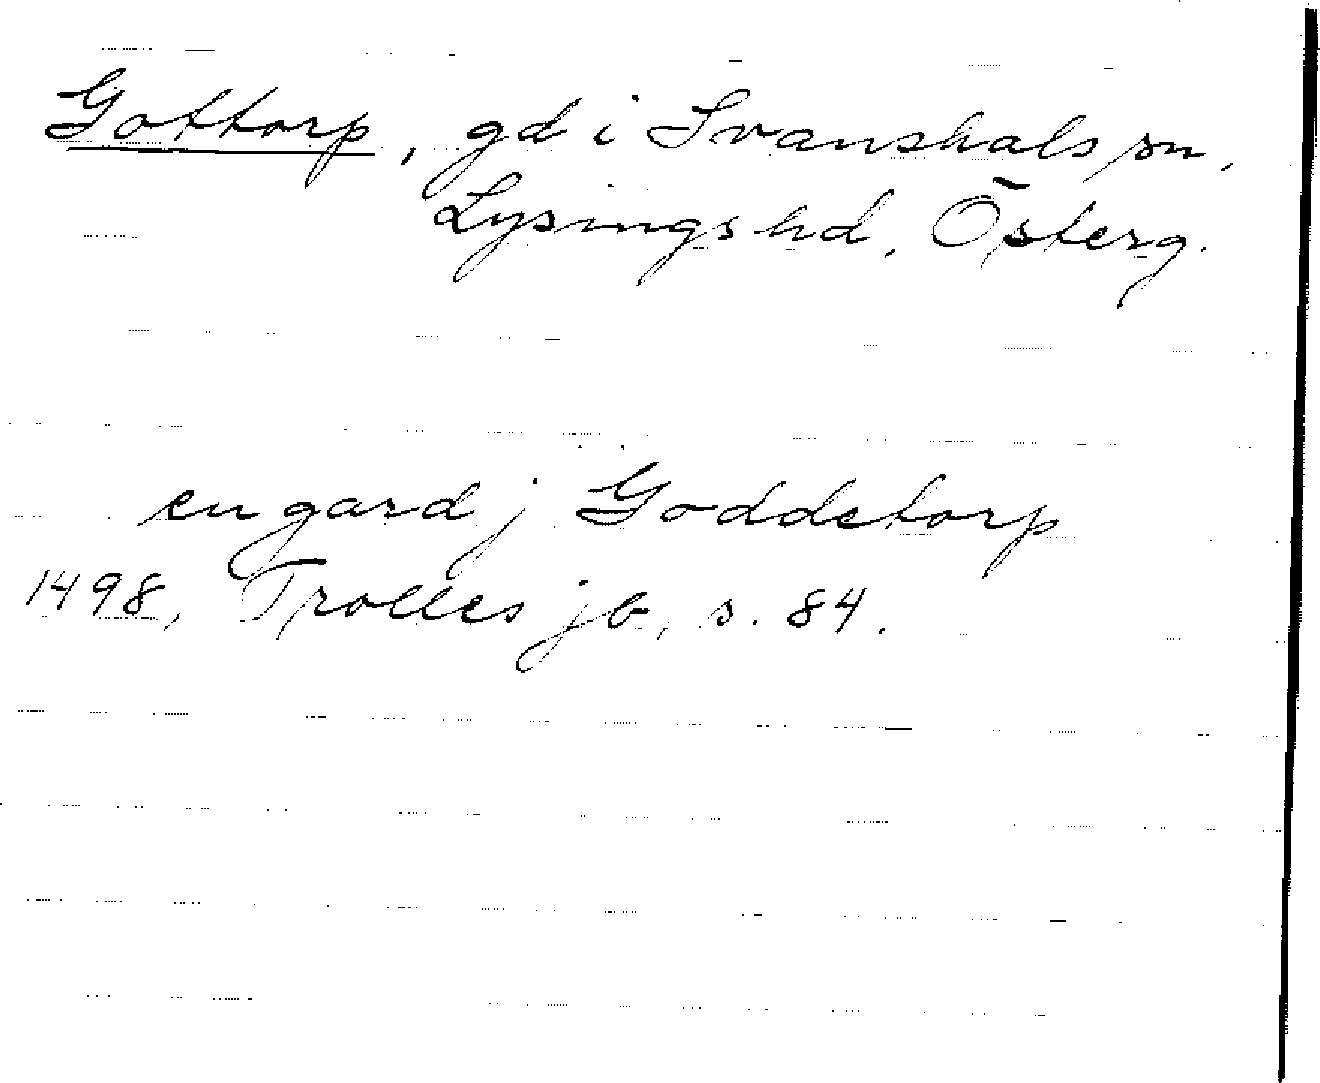 Gottorp, gd i Svanshals sn,
Lysings hd, Österg.
en gard j Goddetorp
1498, Trolles jb, s. 84.